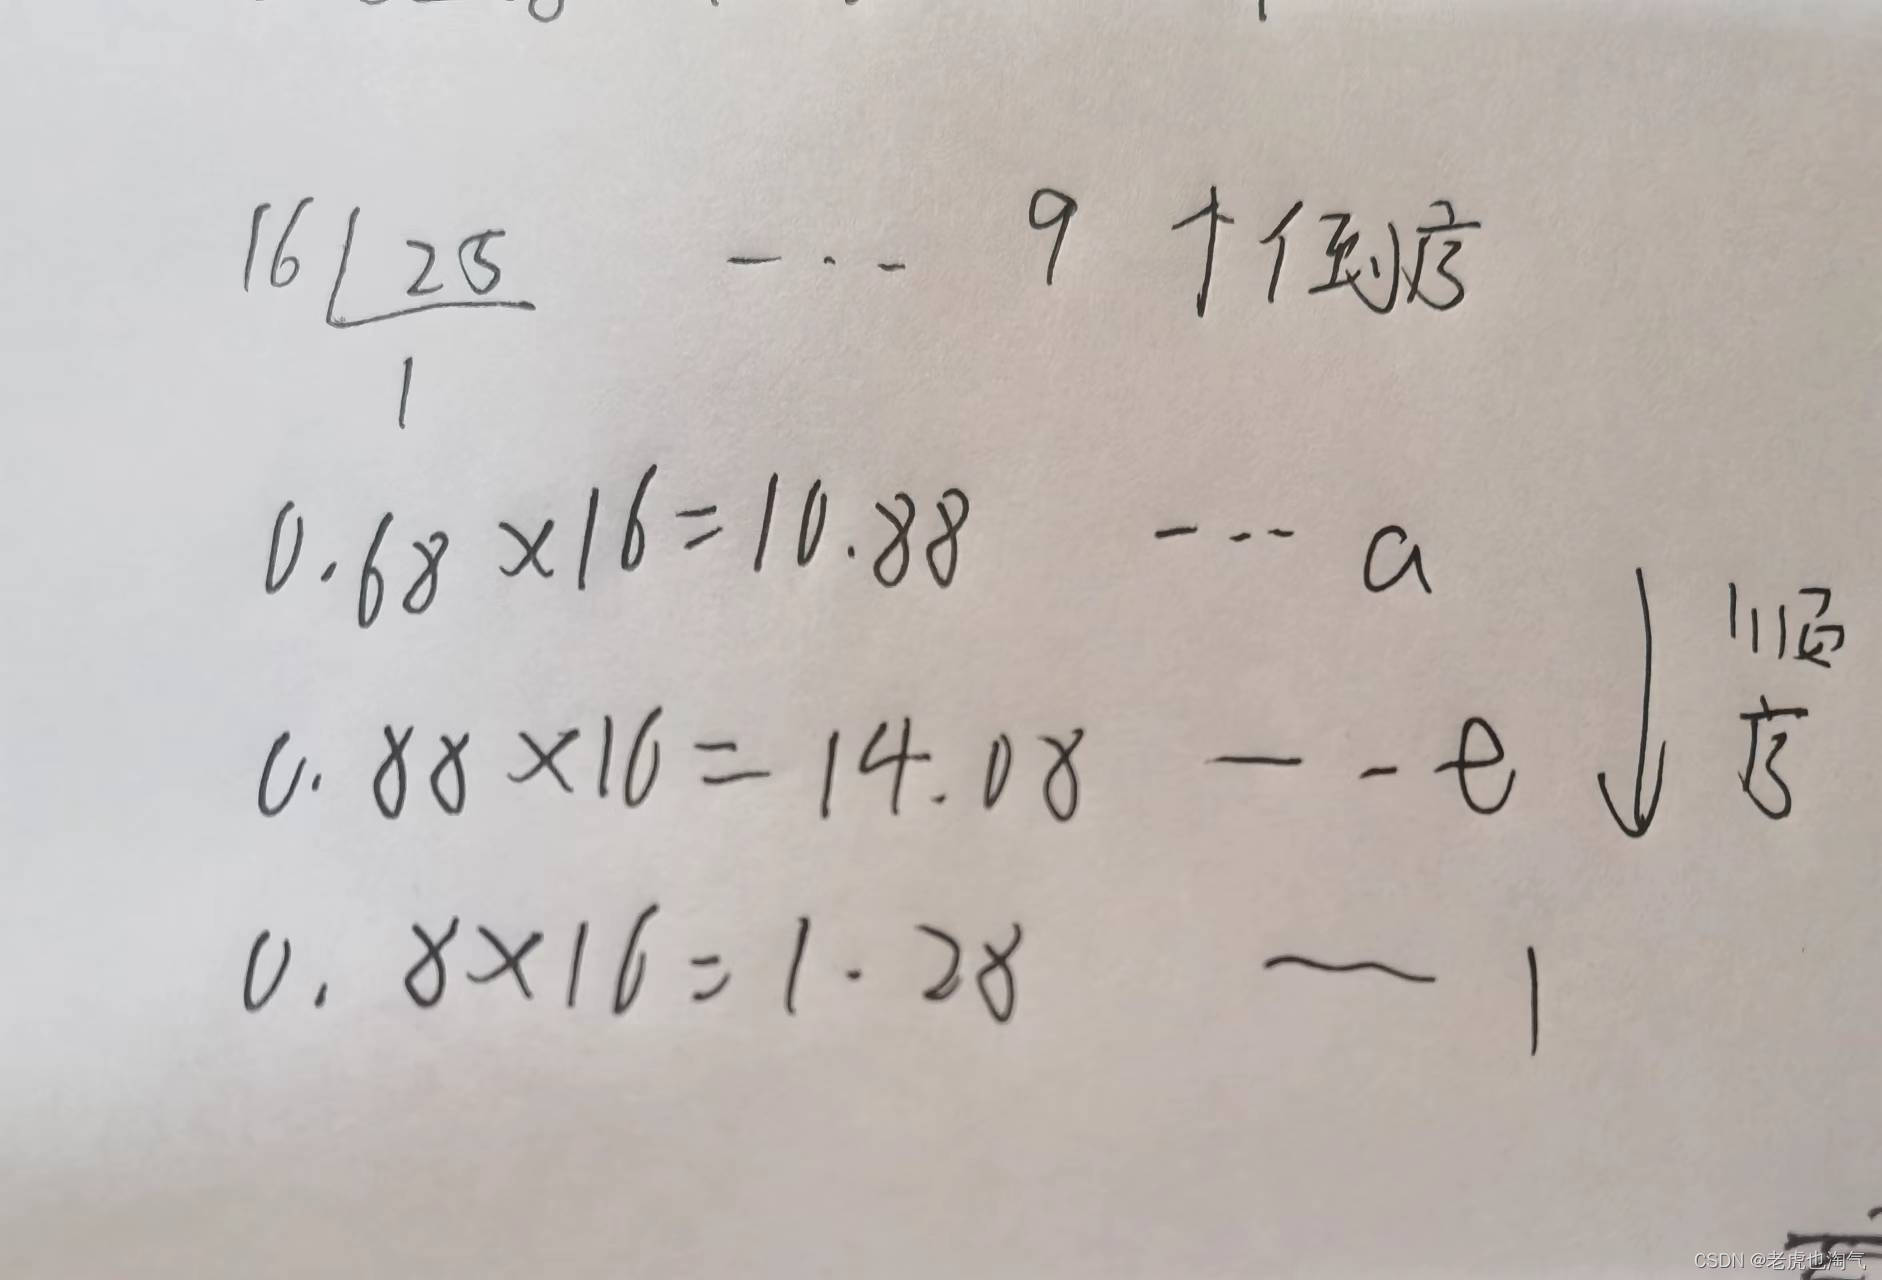 16 25 --- 9 ↑ 倒序
1
0.68×16=10.88 --- a
0.88×16=14.08 --- e
0.8×16=1.28 — 1
↓ 顺序
CSDN @老虎也淘气